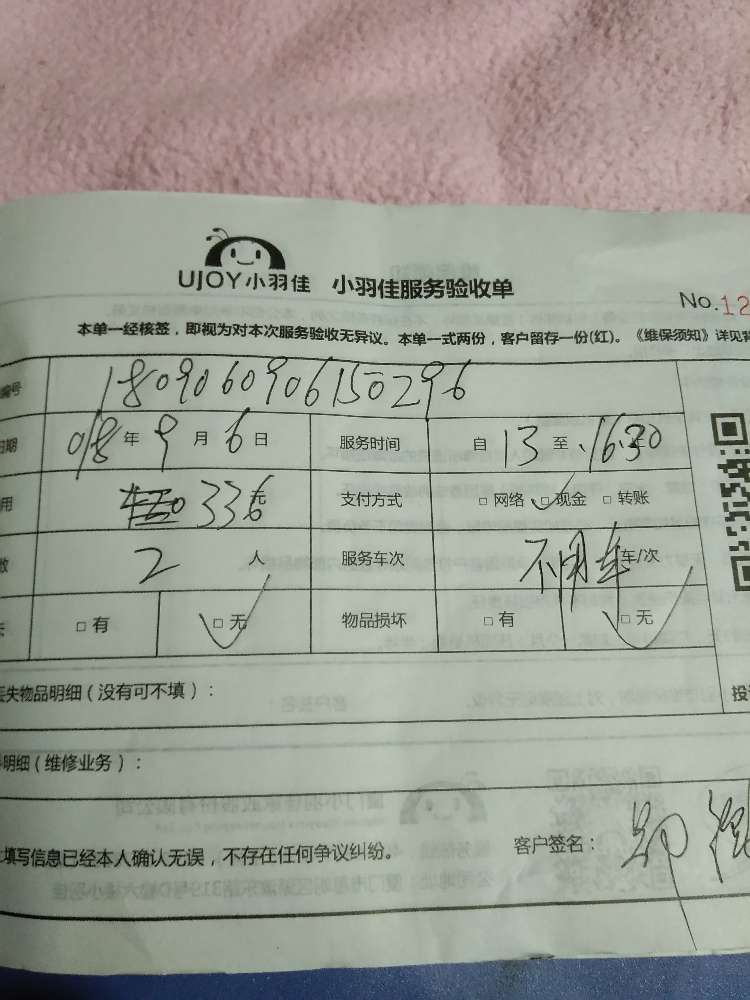 UJOY小羽佳 小羽佳服务验收单
No.12
本单一经核签，即视为对本次服务验收无异议。本单一式两份，客户留存一份(红)。《维保须知》详见背
编号 1809060906150296
日期 018年9月6日 服务时间 自13至16:30
用 336元 支付方式 □网络 ☑现金 □转账
数 2人 服务车次 不用车 车/次
失 □有 ☑无 物品损坏 □有 ☑无
丢失物品明细（没有可不填）：
投
明细（维修业务）：
填写信息已经本人确认无误，不存在任何争议纠纷。 客户签名：